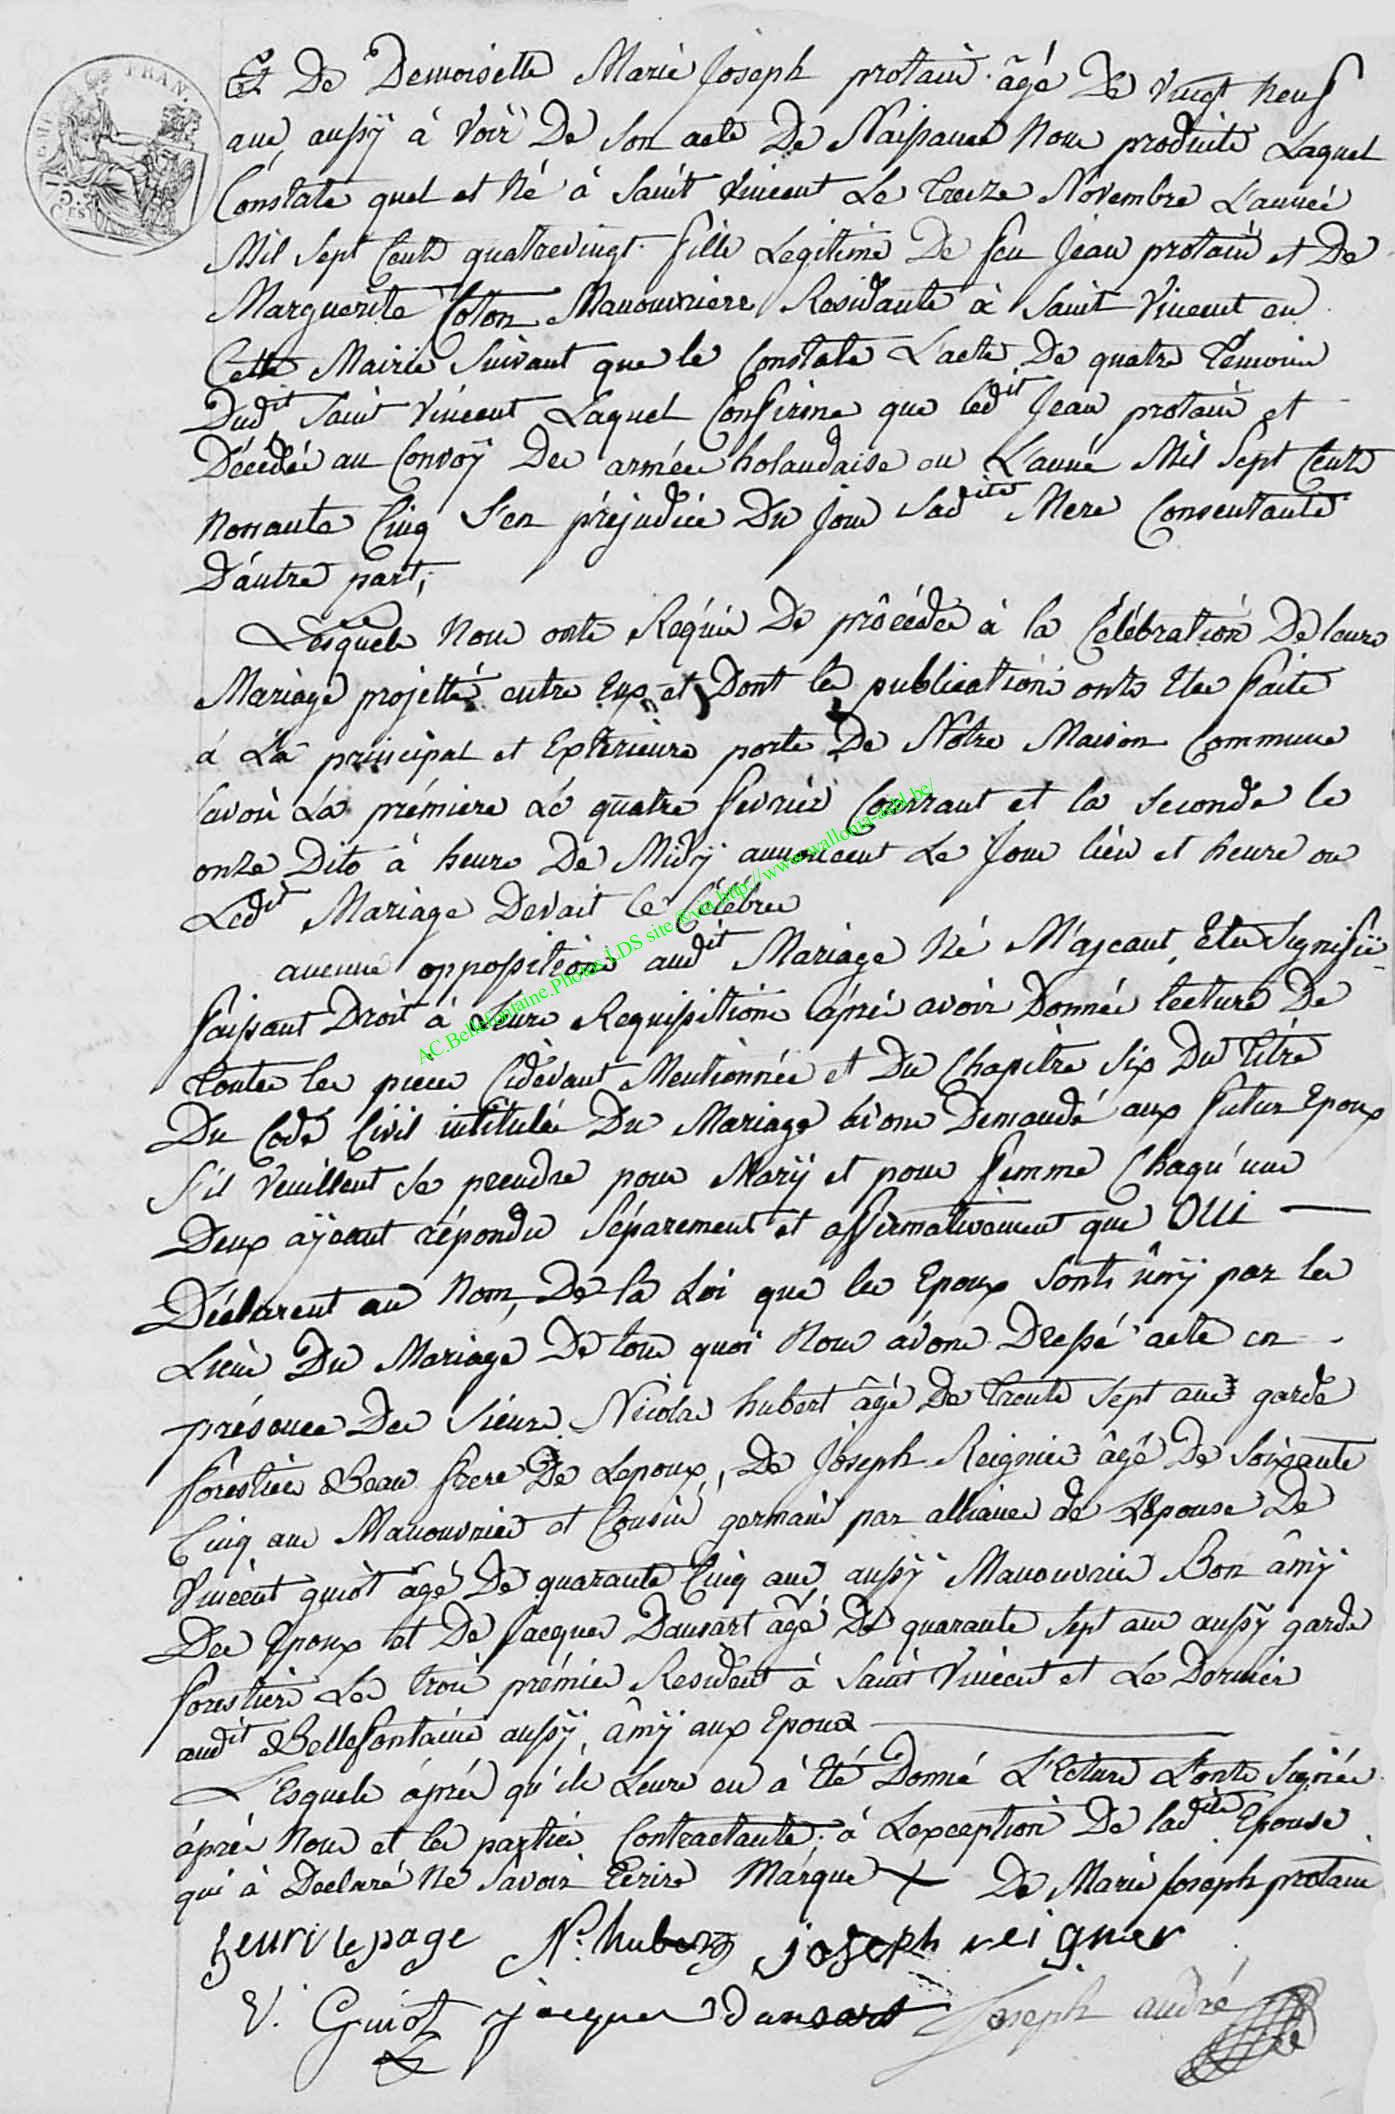 Et De Demoiselle Marie Joseph protain âgé De Vingt neuf
ans aussÿ à Voir De Son acte De Naissance Nous produite Laquel
Constate quel et Né à Saint Vincent Le Treize Novembre L'année
Mil Sept Cents quatrevingt fille Legitime De feu Jean protain et De
Marguerite Colon Manouvriere Residante à Saint Vincent en
Cette Mairie Suivant que le Constate L'acte De quatre Temoins
Dudit Saint Vincent Laquel Confirme que ledit Jean protain et
Décédéé au Convoÿ Des armées holandaise en L'année Mil Sept Cents
Nonante Cinq S'en préjudice Du Jour Sadite Mere Consentante
D'autre part,
Lesquels Nous onts Réquis De procéder à la Célébration De leurs
Mariage projetté entre Eux et Dont les publications onts Etes faite
à La principal et Exterieure porte De Notre Maison Commune
savoir La prémiere Le quatre fevrier Courrant et la Seconde le
onze Dito à heure De Midÿ annoncent Le Jour lieu et heure ou
Ledit Mariage Devait Ce Célébrer
aucune oppositions audit Mariage Né M'ayeant Etes Signifiée
faissant Droit à Leurs Requisitions après avoir Donnée lecture De
toutes les pieces Cidevant Mentionnée et Du Chapitre Six Du Titre
Du Code Civil intitulée Du Mariage avons Demandé aux futur Epoux
S'il Veuillent Se prendre pour Marÿ et pour femme Chaqu'une
Deux aÿeant répondu Séparement et affirmativement que OUI —
Déclarent au Nom, De la Loi que les Epoux Sonts ûnÿ par les
Liens Du Mariage De tous quoi Nous avons Dressé acte en
présence Des Sieurs Nicolas hubert âgé De Trente Sept ans garde
forestier Beau frere De Lepoux, De Joseph Reignier âgé De Soixante
Cinq ans Manouvrier et Cousin germain par alliance de L'Epouse De
Vincent guiot âgé De quarante Cinq ans aussÿ Manouvrier Bon âmÿ
Des Epoux et De Jacques Dansart âgé De quarante Sept ans aussÿ garde
forestier Les trois prémier Resident à Saint Vincent et Le Dernier
audit Bellefontaine aussÿ, âmÿ aux Epoux
L'Esquels âprés qu'ils Leurs en à Eté Donné L'Ecture L'onts Signée
âprés Nous et les parties Contractante, à L'exception De ladite Epouse
qui à Declaré Ne Savoir Ecrire Marque X De Marie Joseph protain
henri lepage N. hubert joseph reigner
V. Guiot jacques Dansart Joseph andré
AC.Bellefontaine.Photos LDS site &via http://www.wallonia-asbl.be/